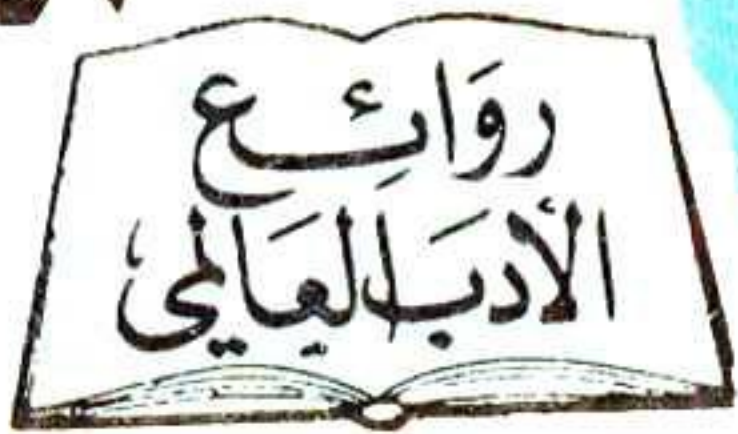 رَوَائِع
الأدَب العَالمى